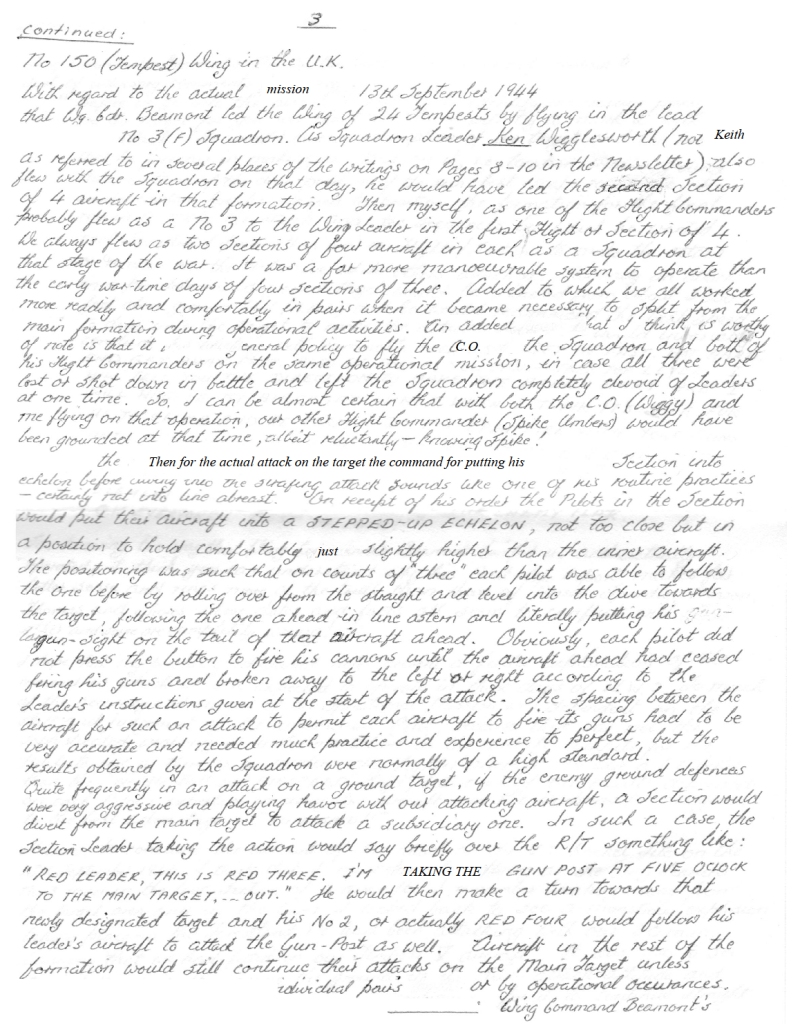 3
continued:
No 150 (Tempest) Wing in the U.K.
With regard to the actual mission 13th September 1944
that Wg. Cdr. Beamont led the Wing of 24 Tempests by flying in the lead
No 3 (F) Squadron. As Squadron Leader Ken Wigglesworth (not Keith
as referred to in several places of the writings on Pages 8-10 in the Newsletter) also
flew with the Squadron on that day, he would have led the second Section
of 4 aircraft in that formation. Then myself, as one of the Flight Commanders
probably flew as a No 3 to the Wing Leader in the first Flight or Section of 4.
We always flew as two Sections of four aircraft in each as a Squadron at
that stage of the war. It was a far more manoeuvrable system to operate than
the early war-time days of four sections of three. Added to which we all worked
more readily and comfortably in pairs when it became necessary to split from the
main formation during operational activities. An added hat I think is worthy
of note is that it eneral policy to fly the C.O. the Squadron and both of
his Flight Commanders on the same operational mission, in case all three were
lost or shot down in battle and left the Squadron completely devoid of Leaders
at one time. So, I can be almost certain that with both the C.O. (Wiggy) and
me flying on that operation, our other Flight Commander (Spike Umbers) would have
been grounded at that time, albeit reluctantly - knowing Spike!
the Then for the actual attack on the target the command for putting his Section into
echelon before into the strafing attack sounds like one of his routine practices
- certainly not into line abreast. On receipt of his order the Pilots in the Section
would put their aircraft into a STEPPED-UP ECHELON, not too close but in
a position to hold comfortably just slightly higher than the inner aircraft.
The positioning was such that on counts of "three" each pilot was able to follow
the one before by rolling over from the straight and level into the dive towards
the target, following the one ahead in line astern and literally putting his gun-
gun-sight on the tail of that aircraft ahead. Obviously, each pilot did
not press the button to fire his cannons until the aircraft ahead had ceased
firing his guns and broken away to the left or right according to the
Leader's instructions given at the start of the attack. The spacing between the
aircraft for such an attack to permit each aircraft to fire its guns had to be
very accurate and needed much practice and experience to perfect, but the
results obtained by the Squadron were normally of a high standard.
Quite frequently in an attack on a ground target, if the enemy ground defences
were very aggressive and playing havoc with our attacking aircraft, a Section would
divert from the main target to attack a subsidiary one. In such a case, the
Section Leader taking the action would say briefly over the R/T something like:
"RED LEADER, THIS IS RED THREE. I'M TAKING THE GUN POST AT FIVE OCLOCK
TO THE MAIN TARGET, ... OUT." He would then make a turn towards that
newly designated target and his No 2, or actually RED FOUR would follow his
leader's aircraft to attack the Gun-Post as well. Aircraft in the rest of the
formation would still continue their attacks on the Main Target unless
individual pairs or by operational occurances.
Wing Command Beamont's